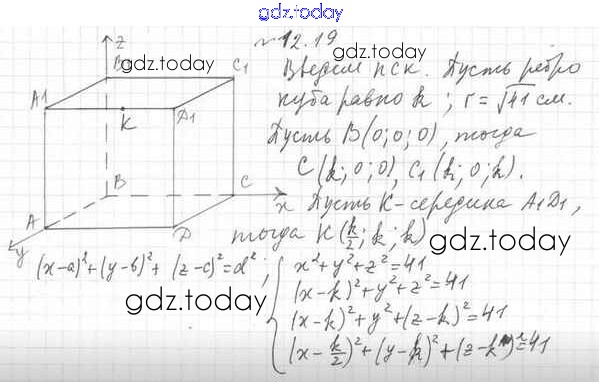 gdz.today
№ 12.19
gdz.today
gdz.today
Введем ПСК. Пусть ребро
куба равно k; r = √41 см.
Пусть B(0;0;0), тогда
C(k;0;0), C1(k;0;k).
Пусть K-середина A1D1,
тогда K(k/2;k;k)
gdz.today
(x-a)²+(y-b)²+(z-c)²=d²;
gdz.today
x²+y²+z²=41
(x-k)²+y²+z²=41
(x-k)²+y²+(z-k)²=41
(x-k/2)²+(y-k)²+(z-k)²=41
z
B1
C1
A1
K
D1
B
C
x
A
D
y